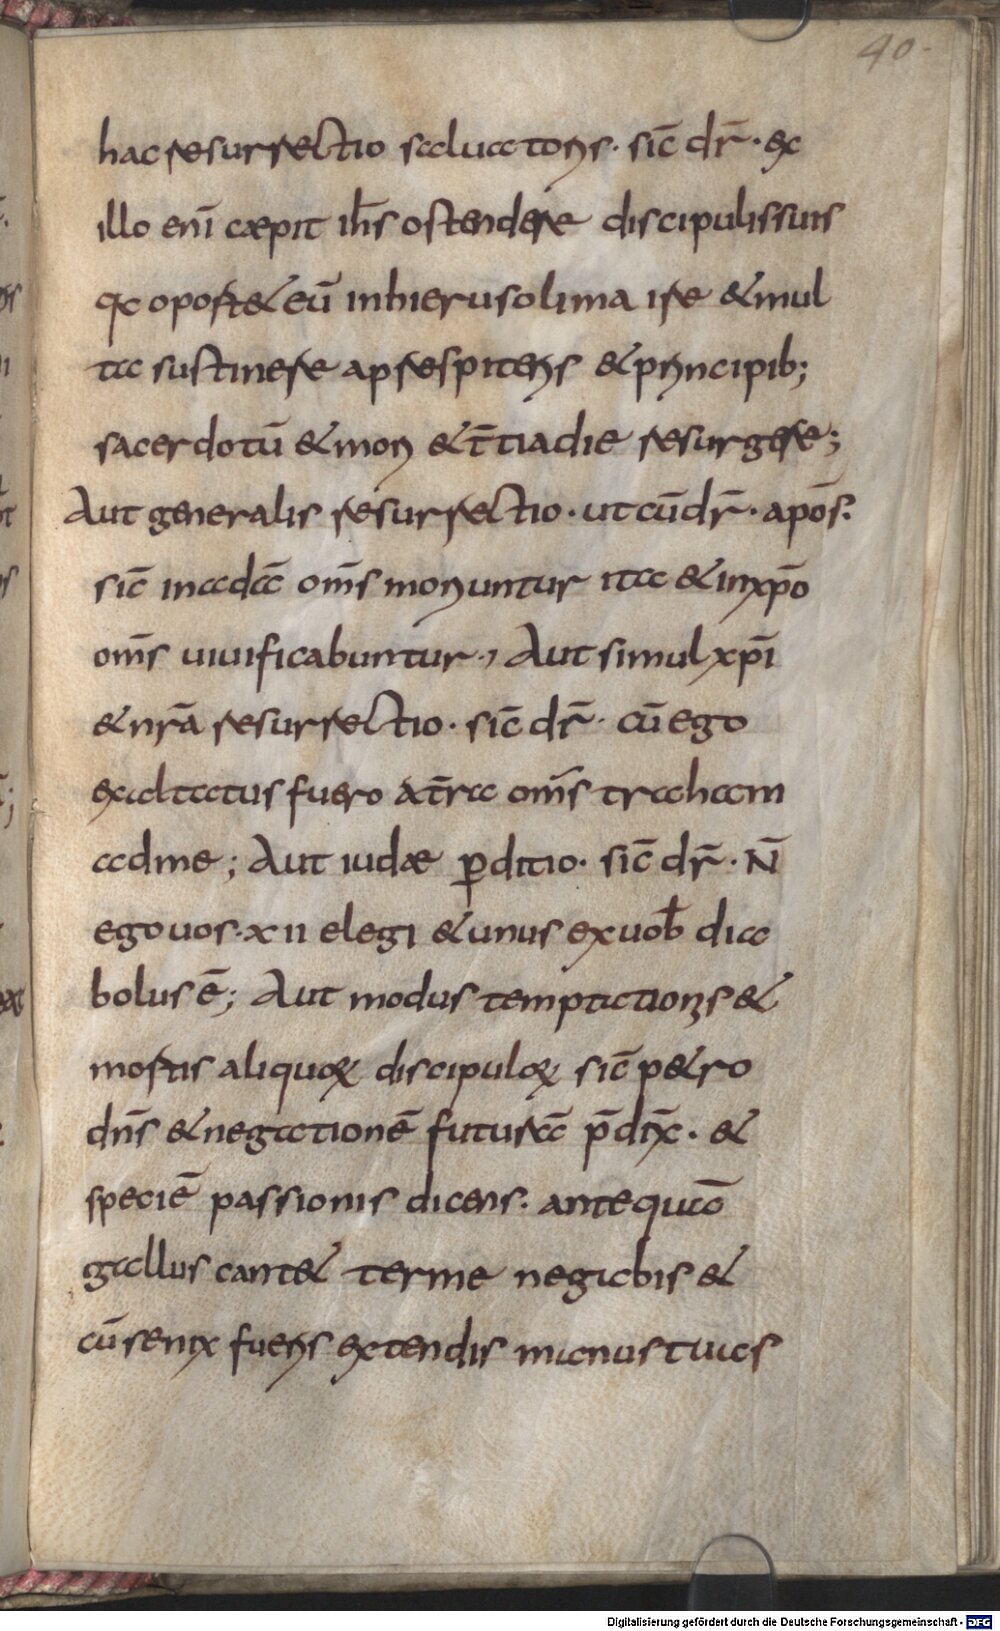 40.
hac resurrectio saluatoris. sic̄ dr̄. ex
illo eni̅ cæpit ih̅s ostendere discipulis suis
qa oport& eu̅ in hierusolima ire & mul
ta sustinere a prespiteris & principib;
sacerdotu̅ & mori & t̅tia die resurgere;
Aut generalis resurrectio. ut cu̅ dr̄. apos̅.
sic̄ in ada̅ om̅s moriuntur ita & in xp̅o
om̅s uiuificabuntur., Aut simul xp̅i
& nr̅a resurrectio. sic̄ dr̄. cu̅ ego
exaltatus fuero a t̅ra om̅s traham
ad me; Aut iudæ ꝑditio. sic̄ dr̄. N̅
ego uos. xii elegi & unus ex uob̅ dia
bolus e̅; Aut modus temptationis &
mortis aliquoꝝ discipuloꝝ sic̄ p&ro
dn̅s & negatione̅ futura̅ p̅dix̅. &
specie̅ passionis dicens. antequa̅
gallus cant& ter me negabis &
cu̅ senix fueris extendis manus tuas
Digitalisierung gefördert durch die Deutsche Forschungsgemeinschaft - DFG